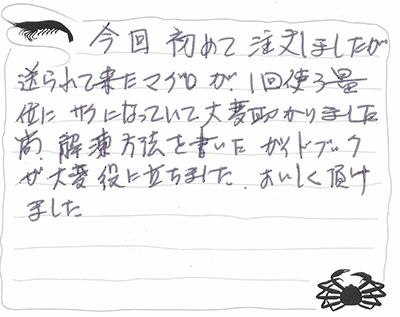 今回 初めて 注文しましたが
送られて来たマグロが、1回使う量
位に サクになっていて大変助かりました
尚、解凍方法を書いた ガイドブック
が大変役に立ちました、おいしく頂け
ました